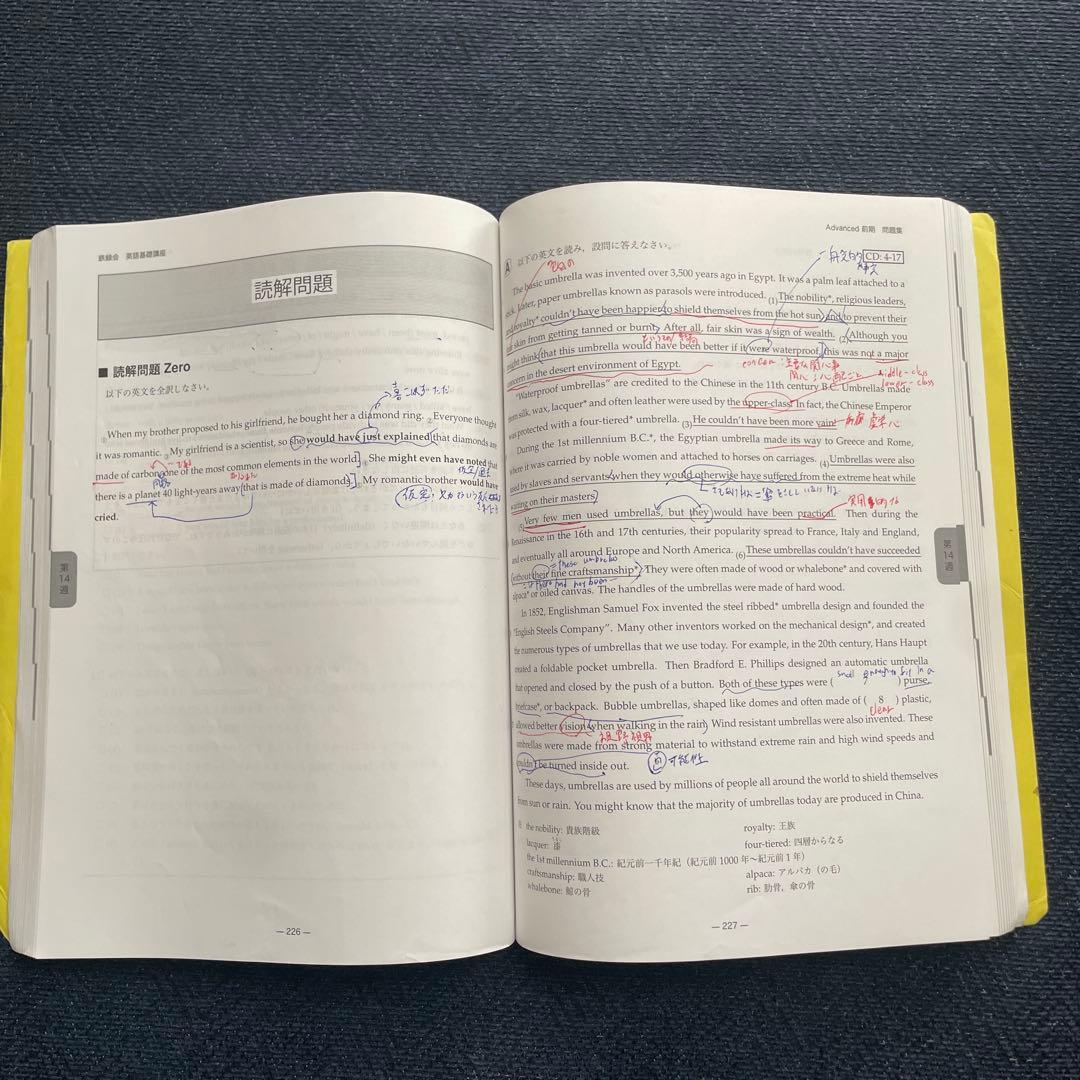 鉄緑会 英語基礎講座
読解問題
■ 読解問題 Zero
以下の英文を全訳しなさい。
①When my brother proposed to his girlfriend, he bought her a diamond ring. ②Everyone thought
it was romantic. ③My girlfriend is a scientist, so she would have just explained that diamonds are
made of carbon, one of the most common elements in the world. ④She might even have noted that
there is a planet 40 light-years away that is made of diamonds. ⑤My romantic brother would have
cried.
第14週
— 226 —
Advanced 前期 問題集
A 以下の英文を読み，設問に答えなさい。
CD: 4-17
The basic umbrella was invented over 3,500 years ago in Egypt. It was a palm leaf attached to a
stick. Later, paper umbrellas known as parasols were introduced. (1)The nobility*, religious leaders,
and royalty* couldn't have been happier to shield themselves from the hot sun and to prevent their
fair skin from getting tanned or burnt. After all, fair skin was a sign of wealth. (2)Although you
might think that this umbrella would have been better if it were waterproof, this was not a major
concern in the desert environment of Egypt.
concern :
middle-class
lower-class
"Waterproof umbrellas" are credited to the Chinese in the 11th century B.C. Umbrellas made
from silk, wax, lacquer* and often leather were used by the upper-class. In fact, the Chinese Emperor
was protected with a four-tiered* umbrella. (3)He couldn't have been more vain!
During the 1st millennium B.C.*, the Egyptian umbrella made its way to Greece and Rome,
where it was carried by noble women and attached to horses on carriages. (4)Umbrellas were also
used by slaves and servants when they would otherwise have suffered from the extreme heat while
waiting on their masters.
(5)Very few men used umbrellas, but they would have been practical. Then during the
Renaissance in the 16th and 17th centuries, their popularity spread to France, Italy and England,
and eventually all around Europe and North America. (6)These umbrellas couldn't have succeeded
without their fine craftsmanship*. They were often made of wood or whalebone* and covered with
alpaca* or oiled canvas. The handles of the umbrellas were made of hard wood.
In 1852, Englishman Samuel Fox invented the steel ribbed* umbrella design and founded the
"English Steels Company". Many other inventors worked on the mechanical design*, and created
the numerous types of umbrellas that we use today. For example, in the 20th century, Hans Haupt
created a foldable pocket umbrella. Then Bradford E. Phillips designed an automatic umbrella
that opened and closed by the push of a button. Both of these types were ( 7 ) purse,
small enough to fit in a
briefcase*, or backpack. Bubble umbrellas, shaped like domes and often made of ( 8 ) plastic,
clear
allowed better vision when walking in the rain. Wind resistant umbrellas were also invented. These
視野 視界
umbrellas were made from strong material to withstand extreme rain and high wind speeds and
couldn't be turned inside out.
可能性
These days, umbrellas are used by millions of people all around the world to shield themselves
from sun or rain. You might know that the majority of umbrellas today are produced in China.
the nobility: 貴族階級
royalty: 王族
lacquer: 漆
four-tiered: 四層からなる
the 1st millennium B.C.: 紀元前一千年紀（紀元前 1000 年～紀元前 1 年）
craftsmanship: 職人技
alpaca: アルパカ（の毛）
whalebone: 鯨の骨
rib: 肋骨，傘の骨
第14週
— 227 —